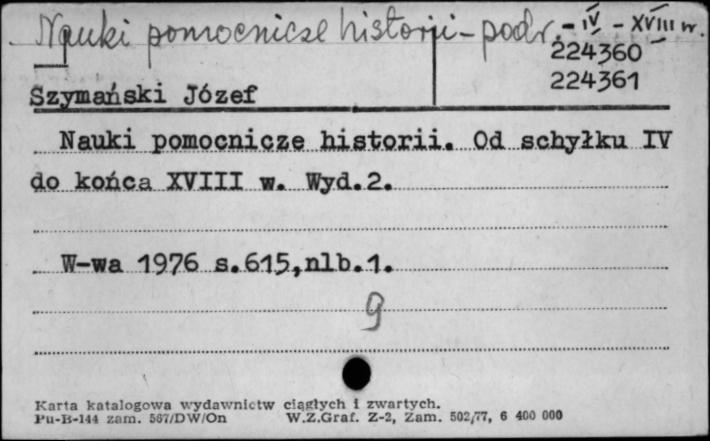 Nauki pomocnicze historii - podr. - IV - XVIII w.
224360
224361
Szymański Józef
Nauki pomocnicze historii. Od schyłku IV
do końca XVIII w. Wyd.2.
W-wa 1976 s.615,nlb.1.
9
Karta katalogowa wydawnictw ciągłych i zwartych.
Pu-B-144 zam. 567/DW/On W.Z.Graf. Z-2, Zam. 502/77, 6 400 000